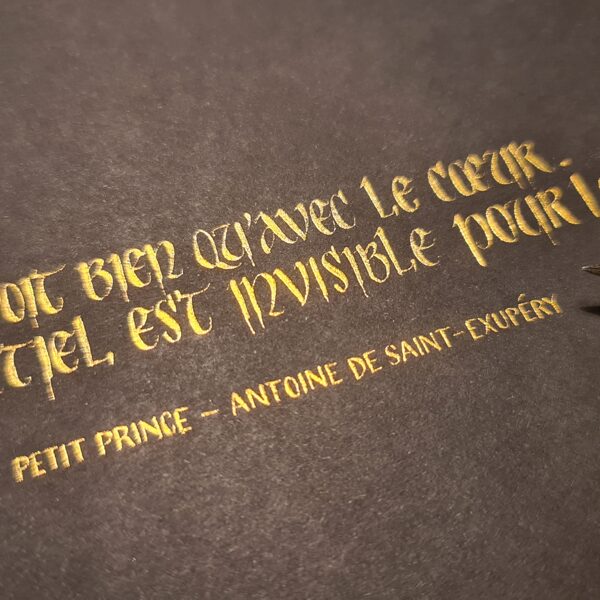 OIT BIEN QU'AVEC LE CŒUR.
TIEL EST INVISIBLE POUR L
PETIT PRINCE – ANTOINE DE SAINT-EXUPÉRY